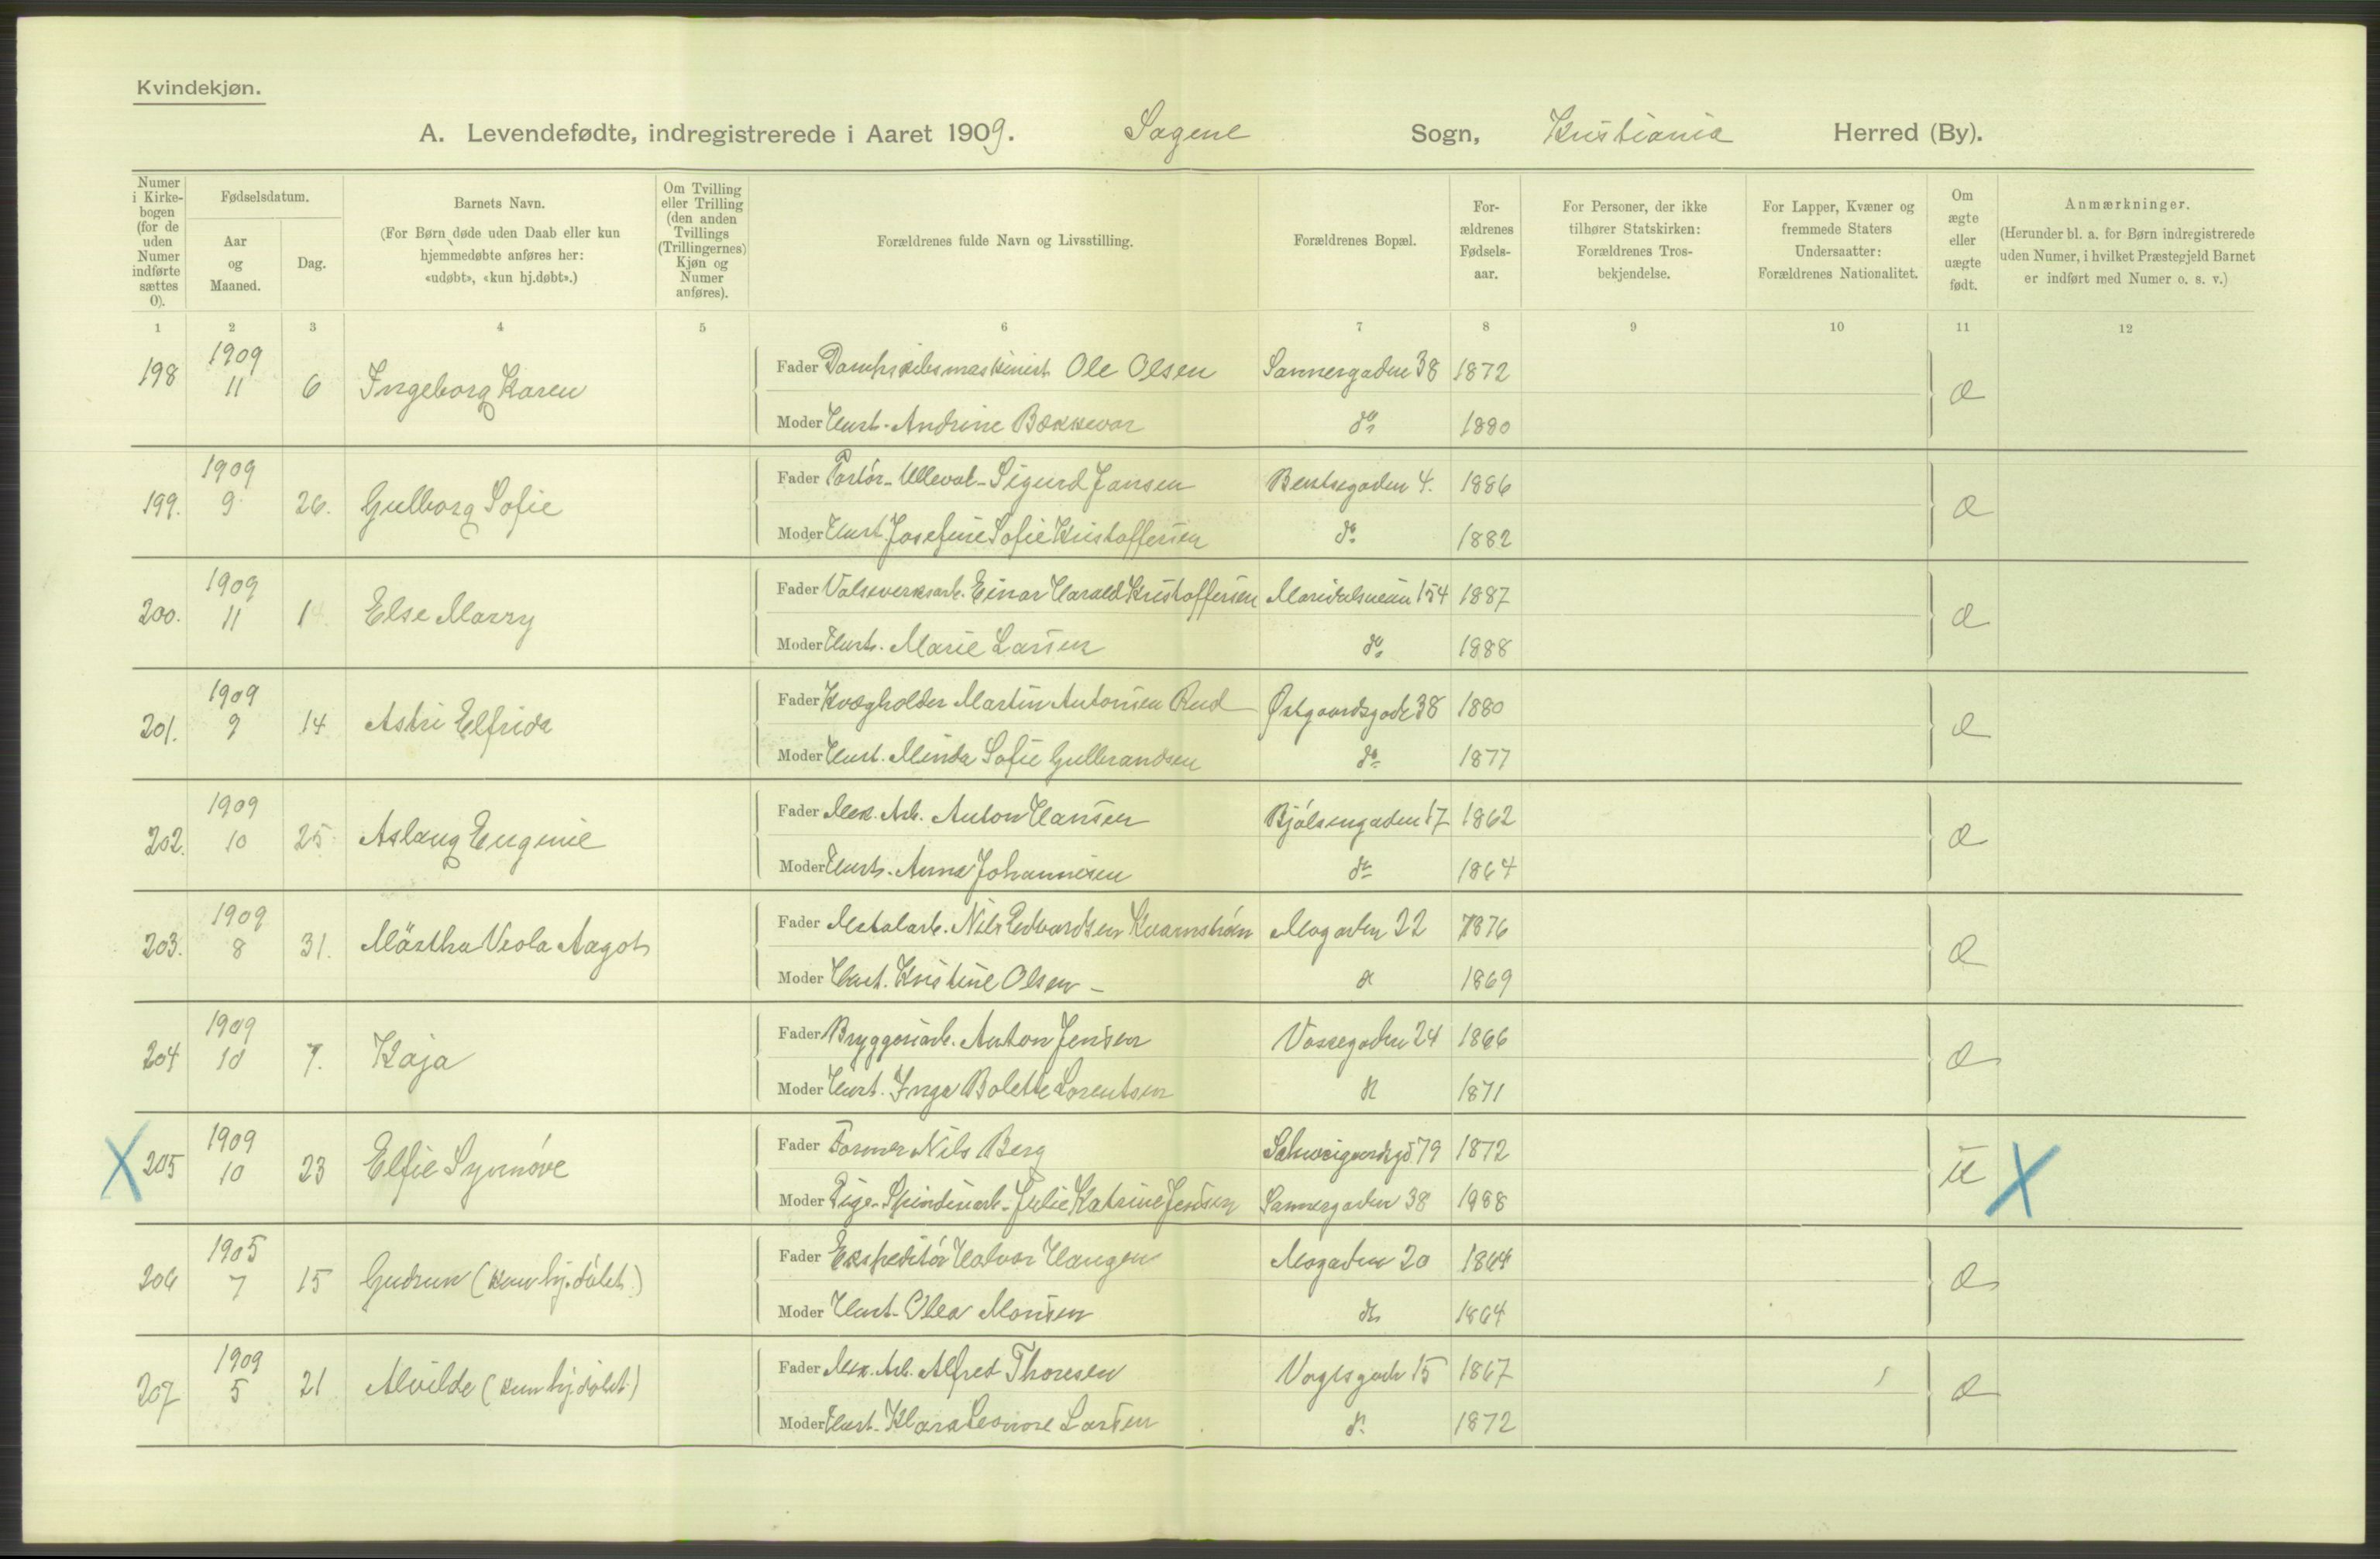 Kvindekjøn.
A. Levendefødte, indregistrerede i Aaret 1909. Sagene Sogn, Kristiania Herred (By).
Numer i Kirke-bogen (for de uden Numer indførte sættes 0).
Fødselsdatum.
Aar og Maaned.
Dag.
Barnets Navn.
(For Børn døde uden Daab eller kun hjemmedøbte anføres her: «udøbt», «kun hj.døbt».)
Om Tvilling eller Trilling (den anden Tvillings (Trillingernes) Kjøn og Numer anføres).
Forældrenes fulde Navn og Livsstilling.
Forældrenes Bopæl.
For-ældrenes Fødsels-aar.
For Personer, der ikke tilhører Statskirken: Forældrenes Tros-bekjendelse.
For Lapper, Kvæner og fremmede Staters Undersaatter: Forældrenes Nationalitet.
Om ægte eller uægte født.
Anmærkninger.
(Herunder bl. a. for Børn indregistrerede uden Numer, i hvilket Præstegjeld Barnet er indført med Numer o. s. v.)
1 2 3 4 5 6 7 8 9 10 11 12
198 1909 11 6 Ingeborg Karen Fader Dampskibsmaskinist Ole Olsen Sannergaden 38 1872 æ
Moder Hust. Andrine Bækkevar do 1880
199. 1909 9 26. Gulborg Sofie Fader Portör Ulleval Sigurd Jansen Bentsegaden 4. 1886 æ
Moder Hust. Josefine Sofie Kristoffersen do 1882
200. 1909 11 1 Else Marry Fader Valseverksarb. Einar Harald Kristoffersen Maridalsveien 154 1887 æ
Moder Hustr. Marie Larsen do 1888
201. 1909 9 14 Astri Elfrida Fader Kvægholder Martin Antonsen Rud Østgaardsgade 38 1880 æ
Moder Hust. Minda Sofie Gulbrandsen do 1877
202. 1909 10 25 Aslaug Eugenie Fader Mek. Arb. Anton Hansen Bjölsengaden 17 1862 æ
Moder Hustr. Anna Johannesen do 1864
203. 1909 8 31. Märtha Viola Aagot Fader Metalarb. Nils Edvardsen Kvarnström Mogaden 22 1876 æ
Moder Hust. Kristine Olsen - do 1869
204 1909 10 7. Kaja Fader Bryggeriarb. Anton Jensen Vossegaden 24 1866 æ
Moder Hust. Inga Bolette Lorentsen do 1871
X 205 1909 10 23 Elfie Synnöve Fader Former Nils Berg Schweigaardsgd 79 1872 u X
Moder Pige. Spinderiarb. Julie Katrine Jensen Sannergaden 38 1888
206 1905 7 15 Gudrun (kun hj. döbt.) Fader Ekspeditör Halvor Haugen Mogaden 20 1864 æ
Moder Hust. Olea Monsen do 1864
207 1909 5 21 Alvilde (kun hj. döbt) Fader Mek. Arb. Alfred Thoresen Vogtsgade 15 1867 æ
Moder Hust. Klara Leonore Larsen do 1872